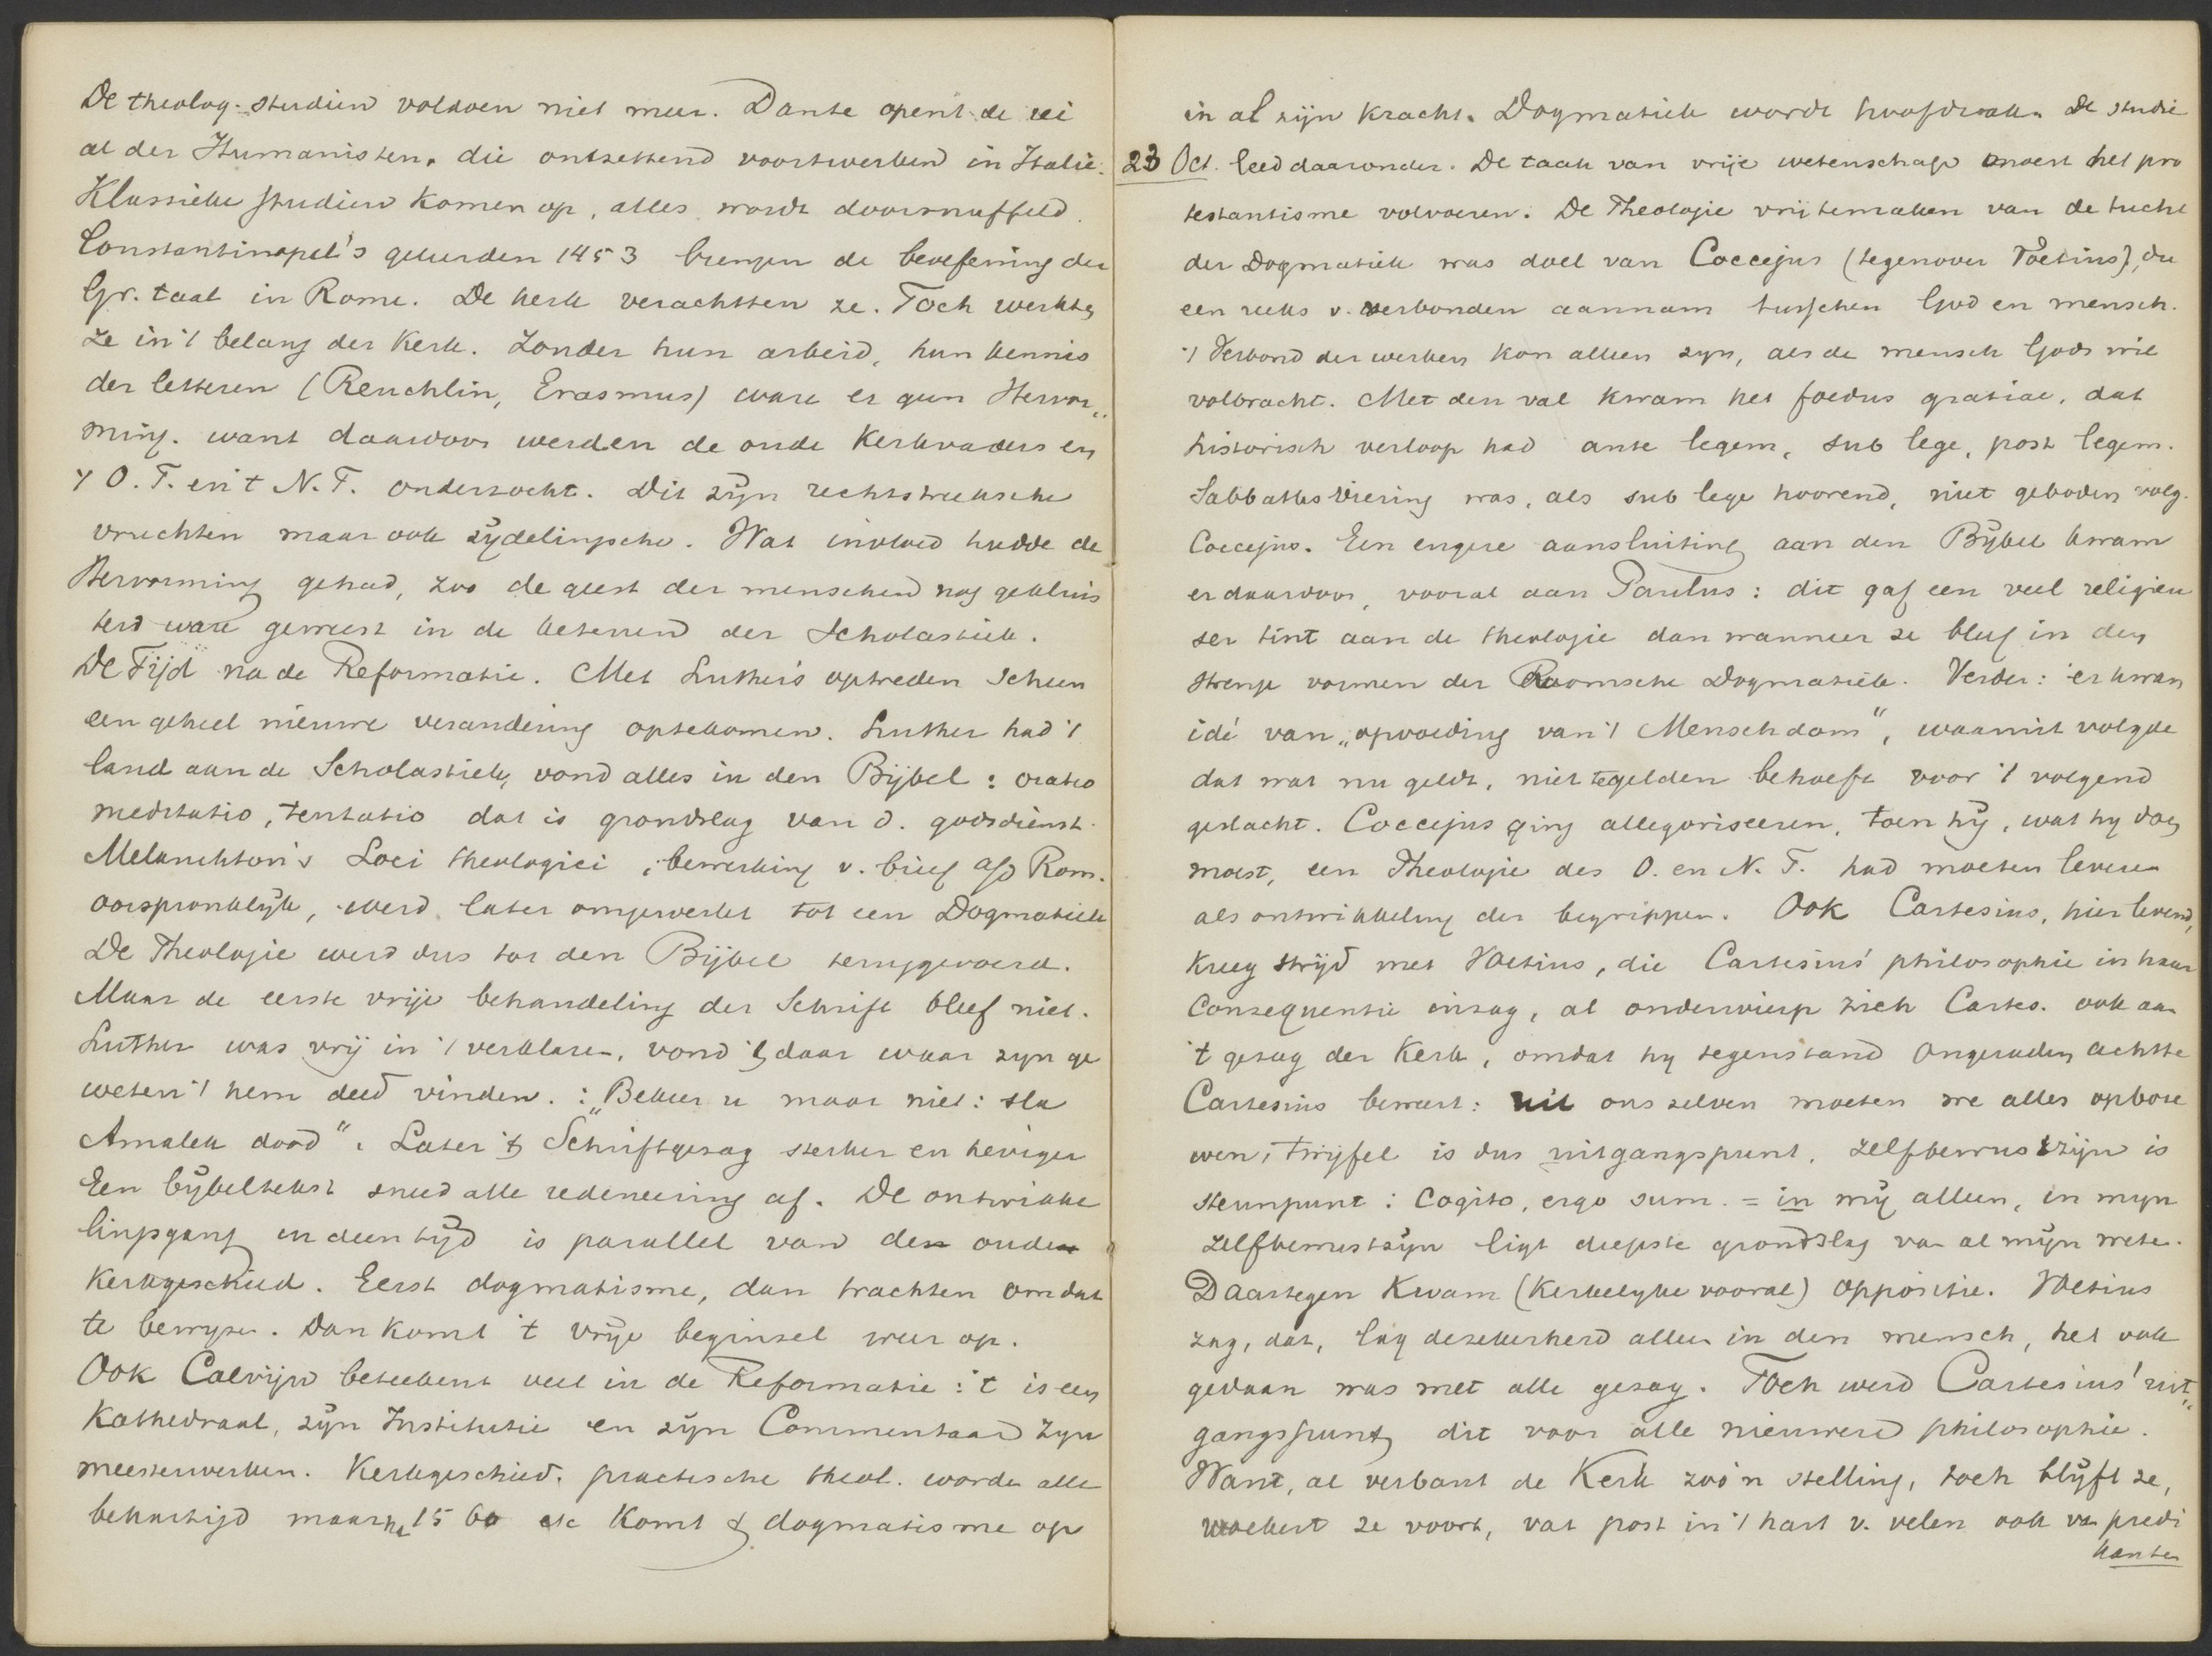 De theolog. studien voldoen niet meer. Dante opent de rei
al der Humanisten, die ontzettend voortwerken in Italie.
Klassieke studien komen op, alles wordt doorsnuffeld.
Constantinopel's geleerden 1453 brengen de beoefening der
Gr. taal in Rome. De kerk verachtten ze. Toch werkten
ze in 't belang der Kerk. Zonder hun arbeid, hun kennis
der letteren (Reuchlin, Erasmus) ware er geen Hervor„
ming. want daardoor werden de oude Kerkvaders en
't O. T. en 't N. T. onderzocht. Dit zijn rechtstreeksche
vruchten maar ook zijdelingsche. Wat invloed hadde de
Hervorming gehad, zoo de geest der menschen nog gekluis
terd ware geweest in de ketenen der Scholastiek.
De Tijd na de Reformatie. Met Luther's optreden scheen
een geheel nieuwe verandering optekomen. Luther had 't
land aan de Scholastiek, vond alles in den Bijbel: oratio
meditatio, tentatio dat is grondslag van d. godsdienst.
Melanchton's Loci theologici, bewerking v. brief a/d Rom.
oorspronklijk, werd later omgewerkt tot een Dogmatiek
De Theologie werd dus tot den Bijbel teruggevoerd.
Maar de eerste vrije behandeling der Schrift bleef niet.
Luther was vrij in 't verklaren, vond 't daar waar zyn ge
weten 't hem deed vinden. : „Bekeer u maar niet: sla
Amalek dood". Later 't Schriftgezag sterker en heviger
Een bijbeltekst sneed alle redeneering af. De ontwikke
lingsgang in deen tijd is parallel van den ouden
Kerkgeschied. Eerst dogmatisme, dan trachten om dat
te bewyzen. Dan komt 't vrije beginsel weer op.
Ook Calvijn beteekent veel in de Reformatie: 't is een
Kathedraal, zijn Institutie en zijn Commentaar zyn
meesterwerken. Kerkgeschied. practische theol. worden alle
behartigd maar na 1560 etc komt 't dogmatisme op
in al zijn kracht. Dogmatiek wordt hoofdzaak. De studie
23 Oct. leed daaronder. De taak van vrije wetenschap moest het pro
testantisme volvoeren. De Theologie vrijtemaken van de tucht
der Dogmatiek was doel van Coccejus (tegenover Voetius), die
een reeks v. verbonden aannam tusschen God en mensch.
't Verbond der werken kon alleen zyn, als de mensch Gods wil
volbracht. Met den val kwam het foedus gratiae, dat
historisch verloop had ante legem, sub lege, post legem.
Sabbathsviering was, als sub lege hoorend, niet geboden volg.
Coccejus. Een engere aansluiting aan den Bijbel kwam
er daardoor, vooral aan Paulus: dit gaf een veel religieu
ser tint aan de theologie dan wanneer ze bleef in den
strenge vormen der Roomsche Dogmatiek. Verder: er kwam
idé van „opvoeding van 't Menschdom", waaruit volgde
dat wat nu geldt, niet tegelden behoeft voor 't volgend
geslacht. Coccejus ging allegoriseeren, toen hij, wat hy doen
moest, een Theologie des O. en N. T. had moeten leveren
als ontwikkeling der begrippen. Ook Cartesius, hier levend,
kreeg strijd met Voetius, die Cartesius' philosophie in haar
consequentie inzag, al onderwierp zich Cartes. ook aan
't gezag der Kerk, omdat hy tegenstand ongeraden achtte
Cartesius beweert: uit ons zelven moeten we alles opbou
wen, twijfel is dus uitgangspunt. zelfbewustzijn is
steunpunt: Cogito, ergo sum. = in mij alleen, in myn
zelfbewustzijn ligt diepste grondslag van al mijn weten.
Daartegen kwam (kerkelyke vooral) oppositie. Voetius
zag, dat, lag de zekerheid alleen in den mensch, het ook
gedaan was met alle gezag. Toch werd Cartesius' uit„
gangspunt, dit voor alle nieuwere philosophie.
Want, al verbant de Kerk zoo'n stelling, toch blijft ze,
woekert ze voort, vat post in 't hart v. velen ook van predi
kanten